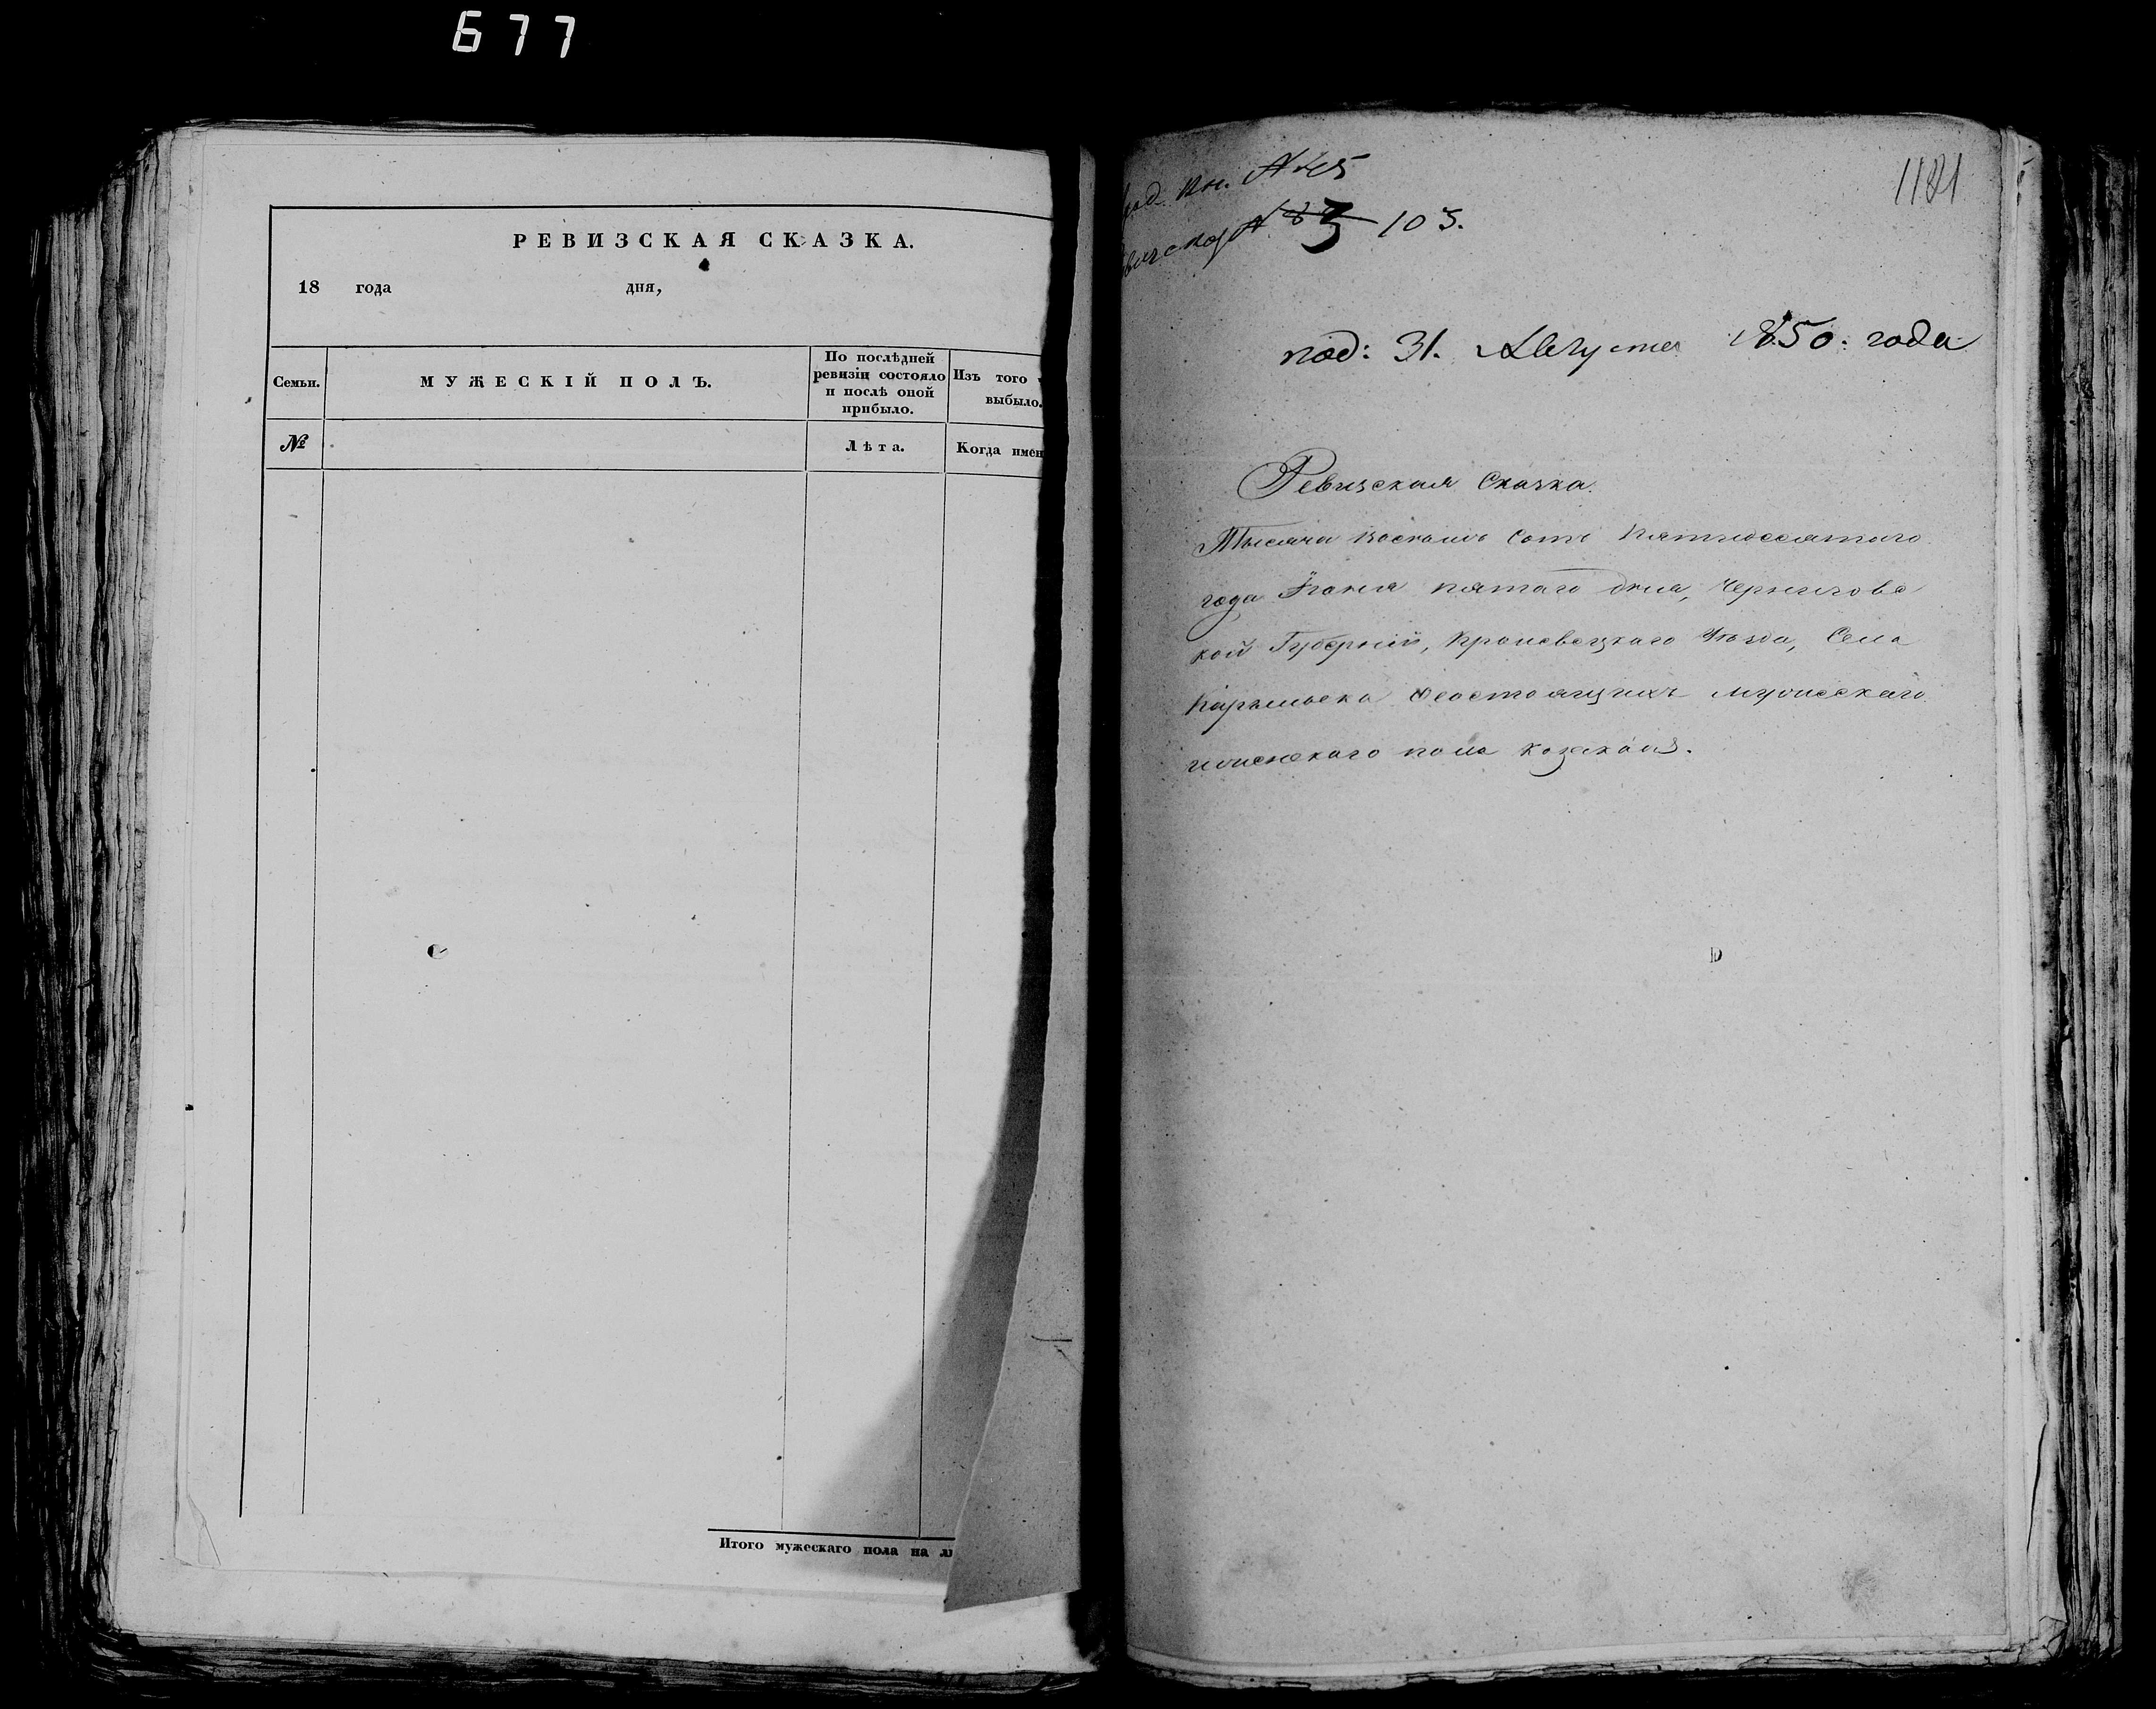 677
РЕВИЗСКАЯ СКАЗКА.
18 года дня,
Семьи.
МУЖЕСКІЙ ПОЛЪ.
По послѣдней
ревизіи состояло
и послѣ оной
прибыло.
Изъ того
выбыло.
№
Лѣта.
Когда имен
Итого мужескаго пола на л
1181
Кн. №
№ 3 103.
под: 31. Августа 1850. года
Ревизская Сказка.
Тысяча восемь сотъ пятидесятаго
года Іюня пятаго дня, Черниговс
кой Губерніи, Кролевецкаго Уѣзда, Села
Карыльска состоящихъ мужескаго
и женскаго пола козакахъ.